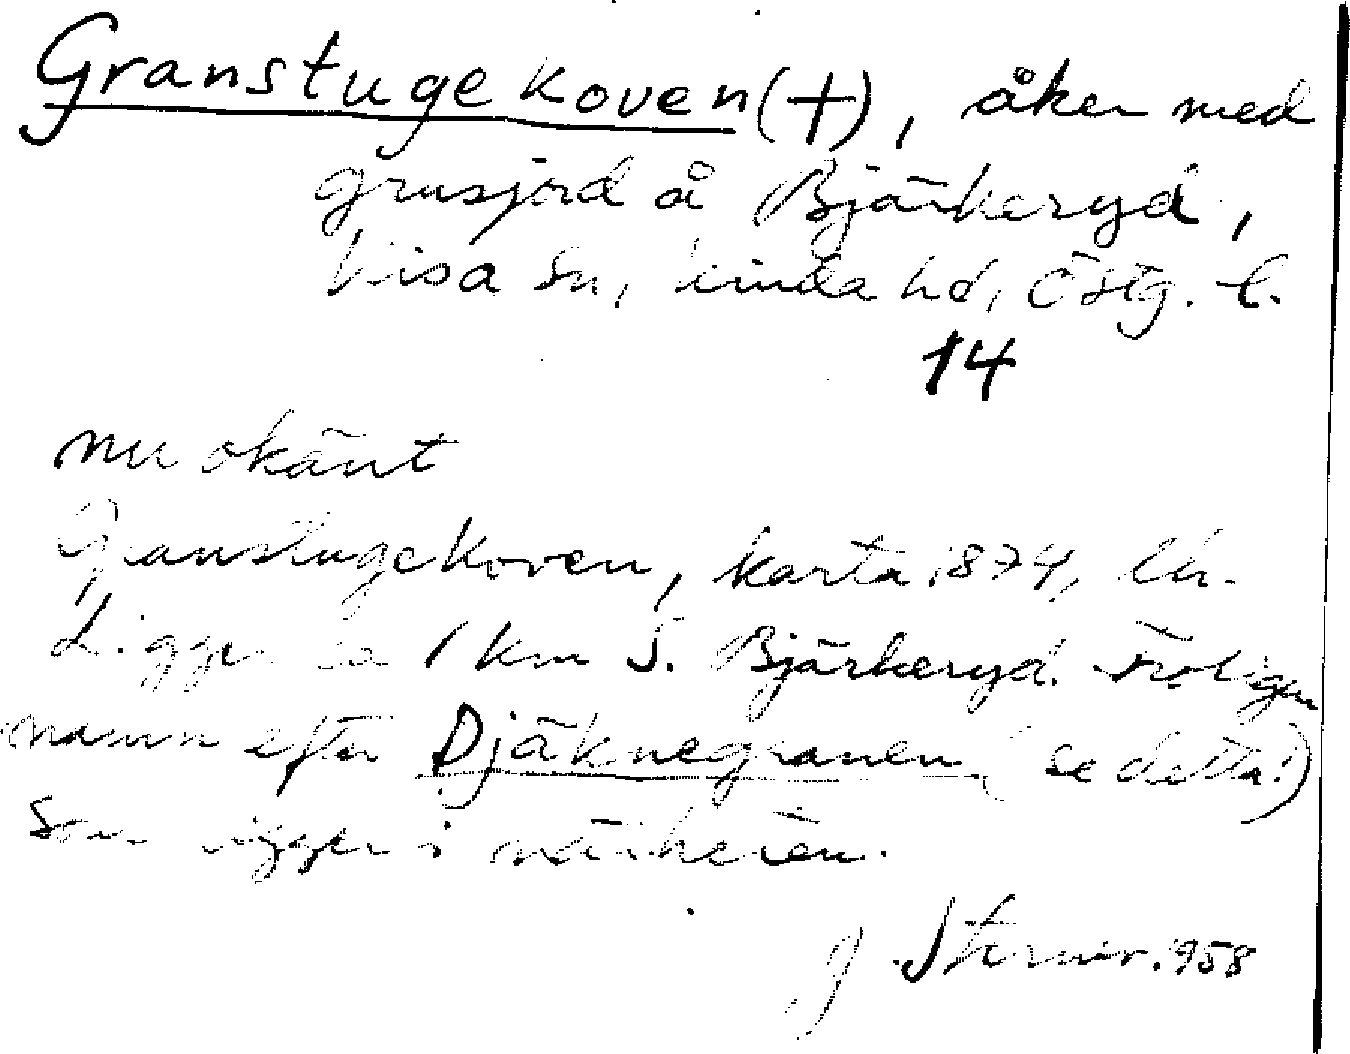 Granstugekoven (+), åker med
grusjord å Bjärkeryd,
Kisa sn, Kinda hd, Östg. l.
14
nu okänt
Granstugekoven, karta 1874,
Ligger ca 1 km S. Bjärkeryd. Troligen
namn efter Djäknegranen (se detta!)
som ligger i närheten.
J Sterner. 1958